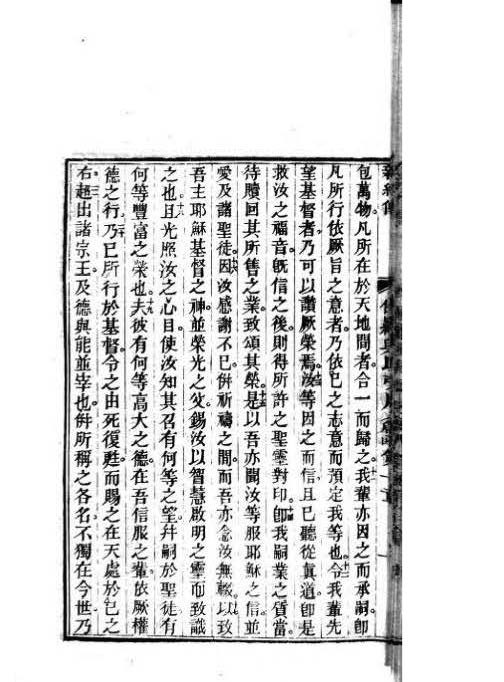 包萬物。凡所在於天地間者合一而歸之。十一我輩亦因之而承嗣。卽
凡所行依厥旨之意者。乃依己之志意而預定我等也。十二令我輩先
望基督者。乃可以讚厥榮焉。十三汝等因之而信。且已聽從眞道。卽是
救汝之福音。旣信之後。則得所許之聖靈對印。十四卽我嗣業之質。當
待贖回其所售之業。致頌其榮。十五是以吾亦聞汝等服耶穌之信。並
愛及諸聖徒。十六因汝感謝不已。併祈禱之間。而吾亦念汝無輟。十七以致
吾主耶穌基督之神。並榮光之父。錫汝以智慧啟明之靈。而致識
之也。十八且光照汝之心目。使汝知其召有何等之望。幷嗣於聖徒有
何等豐富之榮也。十九夫彼有何等高大之德。在吾信服之輩。依厥權
德之行。二十乃已所行於基督。令之由死復甦。而賜之在天處於己之
右。二一超出諸宗王及德與能並宰也。併所稱之各名。不獨在今世。乃